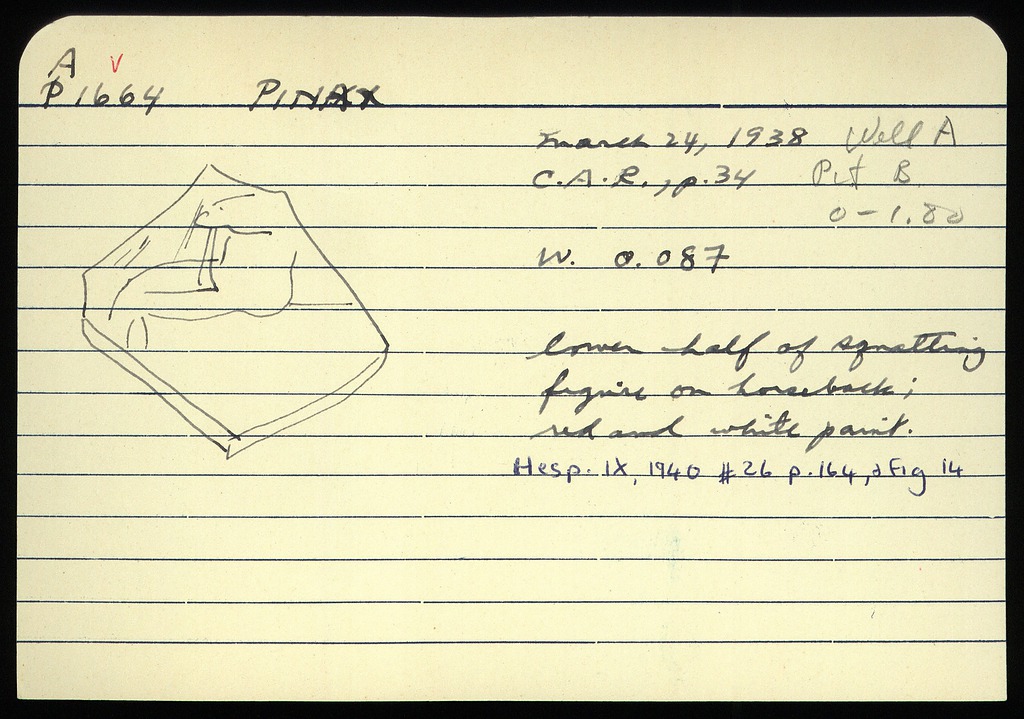 A v
P 1664 PINAX
March 24, 1938 Well A
C.A.R., p.34 Pit B
0-1.80
W. 0.087
lower half of squatting
figure on horseback;
red and white paint.
Hesp. IX, 1940 #26 p.164, & Fig 14